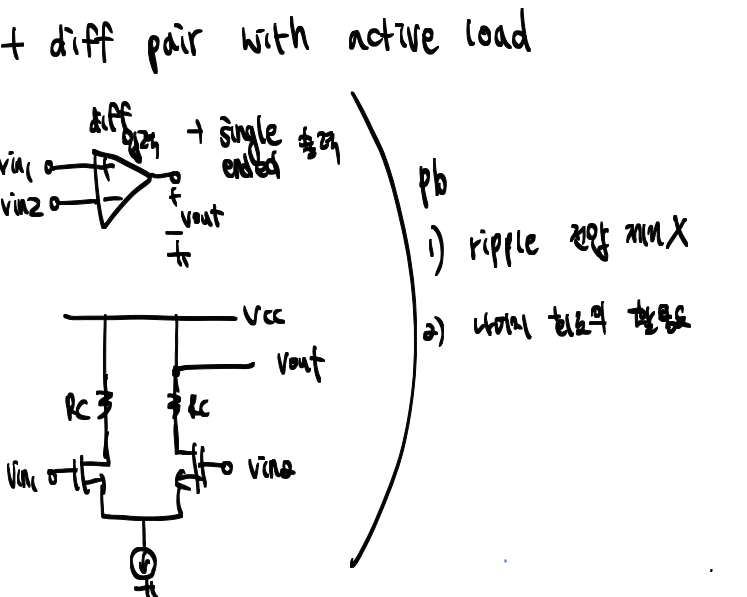 + diff pair with active load
diff 입력 → single ended 출력
vin1
+
vin2
-
+
vout
-
Vcc
Vout
Rc
Rc
Vin1
vin2
pb
1) ripple 전압 제거 X
2) 나머지 의 활용도